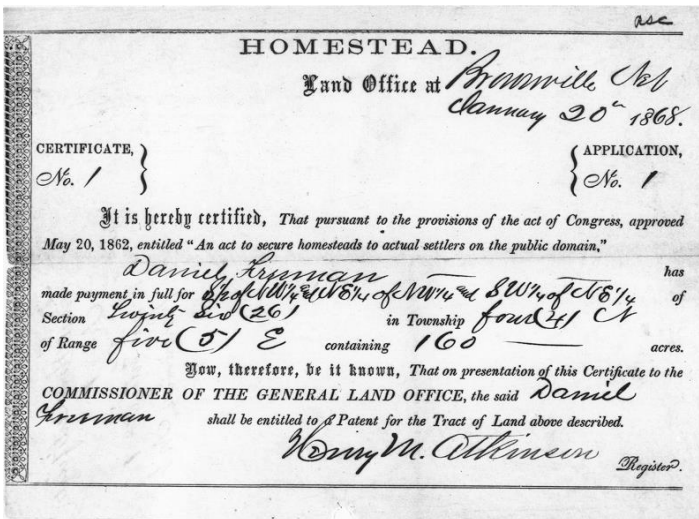 asc
HOMESTEAD.
Land Office at Brownville Neb
January 20th 1868.
CERTIFICATE, No. 1
APPLICATION, No. 1
It is hereby certified, That pursuant to the provisions of the act of Congress, approved
May 20, 1862, entitled “An act to secure homesteads to actual settlers on the public domain,”
Daniel Freeman has
made payment in full for S½ of NW¼ and NE¼ of NW¼ and SW¼ of NE¼ of
Section Twenty Six (26) in Township four (4) N
of Range five (5) E containing 160 acres.
Now, therefore, be it known, That on presentation of this Certificate to the
COMMISSIONER OF THE GENERAL LAND OFFICE, the said Daniel
Freeman shall be entitled to a Patent for the Tract of Land above described.
Henry M. Atkinson
Register.